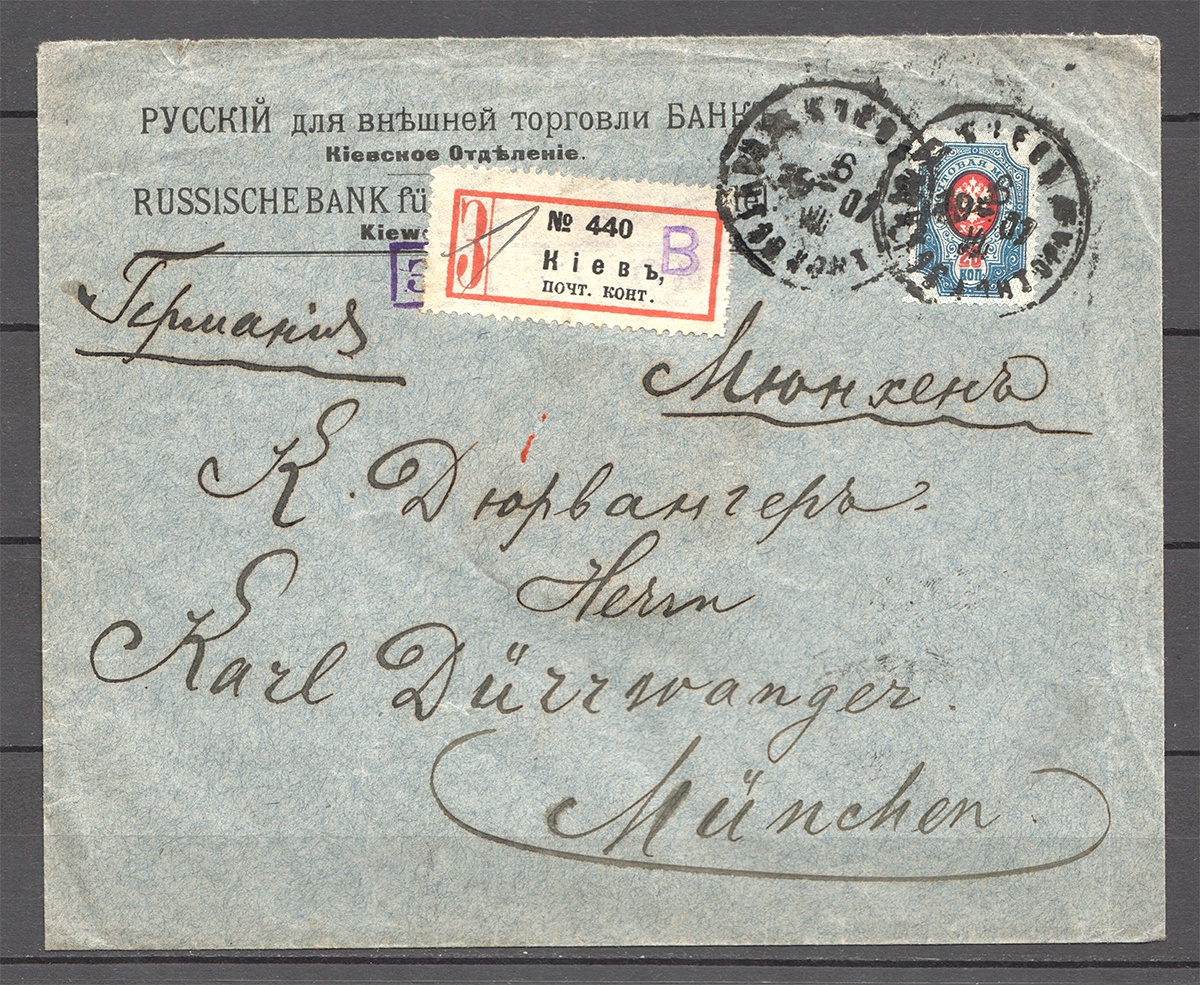 РУССКІЙ для внѣшней торговли БАНКЪ
Кіевское Отдѣленіе.
RUSSISCHE BANK für
Kiew
З
№ 440
Кіевъ,
почт. конт.
В
КІЕВЪ
6
07
КІЕВЪ
07
ПОЧТОВАЯ
20
КОП
Германія
Мюнхенъ
К. Дюрвангеръ.
Herrn
Karl Dürrwanger.
München.